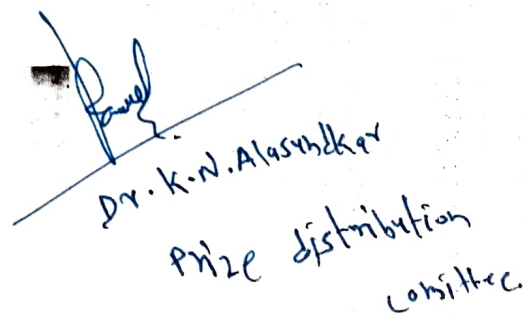 Dr. K. N. Alasundkar
Prize distribution
comittee.